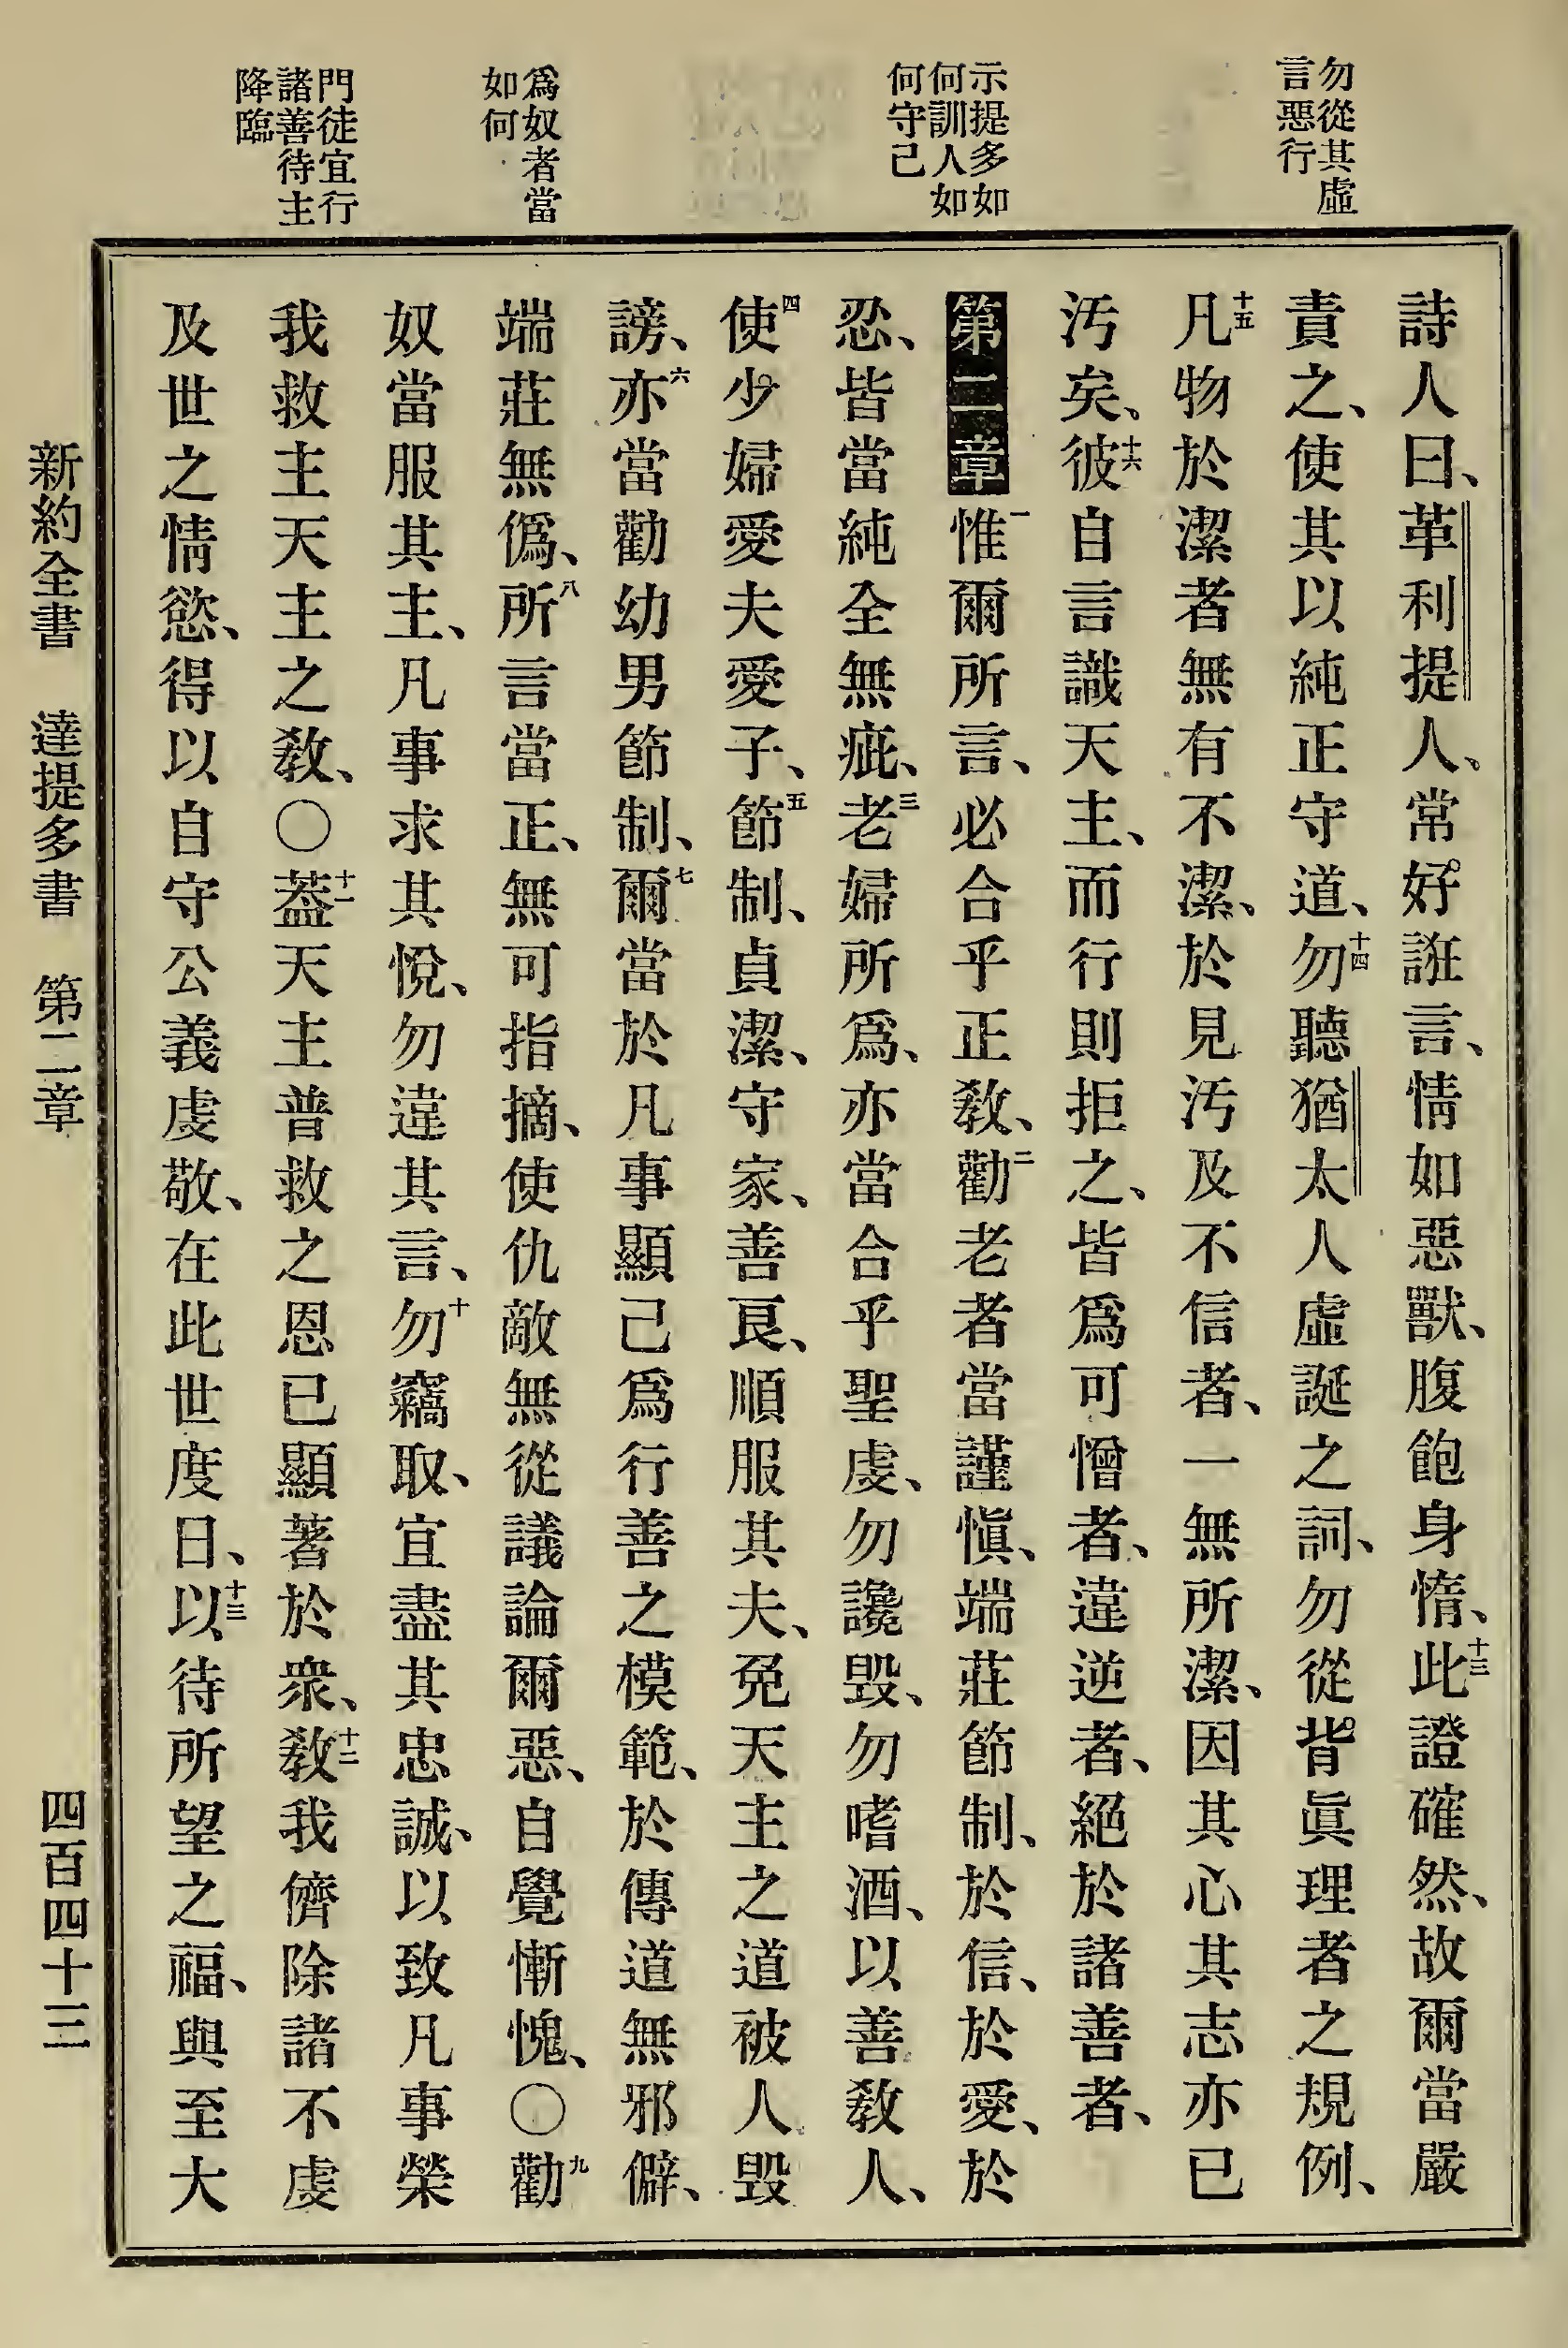 勿從其虛
言惡行
示提多如
何訓人如
何守己
爲奴者當
如何
門徒宜行
諸善待主
降臨
詩人曰、革利提人、常好誑言、情如惡獸、腹飽身惰、十三此證確然、故爾當嚴
責之、使其以純正守道、十四勿聽猶太人虛誕之詞、勿從背眞理者之規例、
十五凡物於潔者無有不潔、於見汚及不信者、一無所潔、因其心其志亦已
汚矣、十六彼自言識天主、而行則拒之、皆爲可憎者、違逆者、絕於諸善者、
第二章一惟爾所言、必合乎正敎、二勸老者當謹愼、端莊節制、於信、於愛、於
忍、皆當純全無疵、三老婦所爲、亦當合乎聖虔、勿讒毀、勿嗜酒、以善敎人、
四使少婦愛夫愛子、五節制、貞潔、守家、善良、順服其夫、免天主之道被人毀
謗、六亦當勸幼男節制、七爾當於凡事顯己爲行善之模範、於傳道無邪僻、
端莊無僞、八所言當正、無可指摘、使仇敵無從議論爾惡、自覺慚愧、〇九勸
奴當服其主、凡事求其悅、勿違其言、十勿竊取、宜盡其忠誠、以致凡事榮
我救主天主之敎、〇十一蓋天主普救之恩已顯著於衆、十二敎我儕除諸不虔
及世之情慾、得以自守公義虔敬、在此世度日、十三以待所望之福、與至大
新約全書 達提多書 第二章 四百四十三